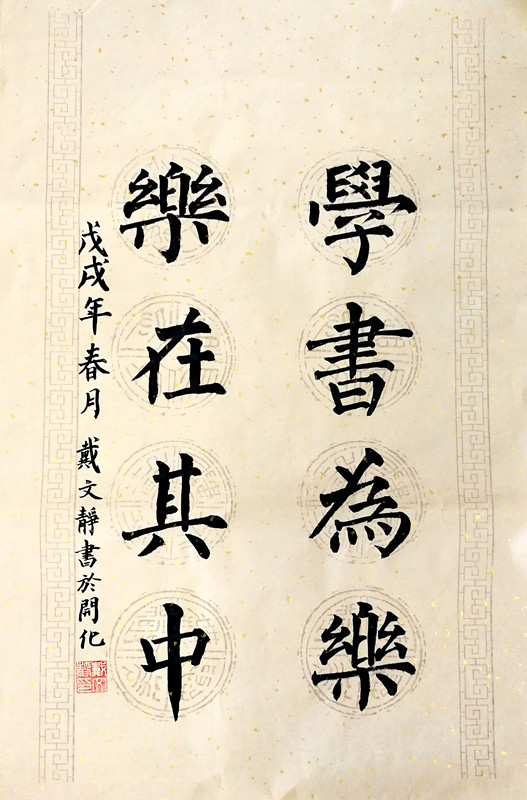 學書為樂
樂在其中
戊戌年春月戴文靜書於開化